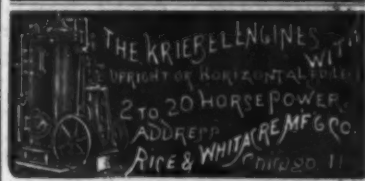 THE KRIEBEL ENGINES WITH
UPRIGHT OR HORIZONTAL BOILER
2 TO 20 HORSE POWER.
ADDRESS
RICE & WHITACRE MFG CO.
Chicago Ill